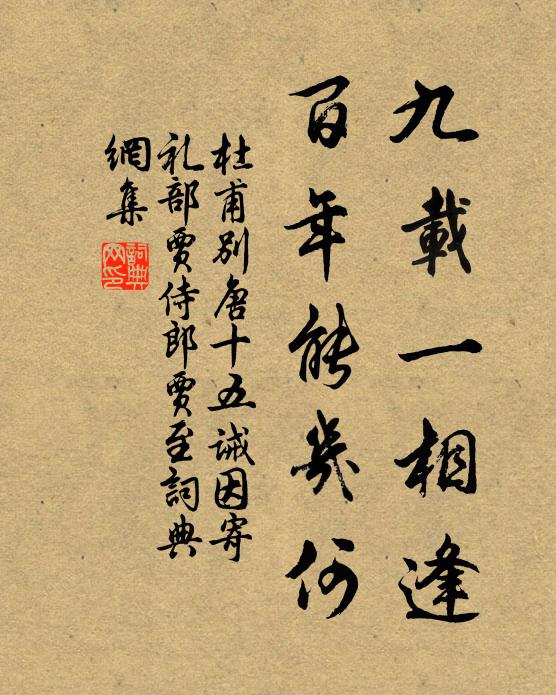 九載一相逢
百年能幾何
杜甫別唐十五誡因寄
礼部賈侍郎賈至詞典
網集
詞典
网印